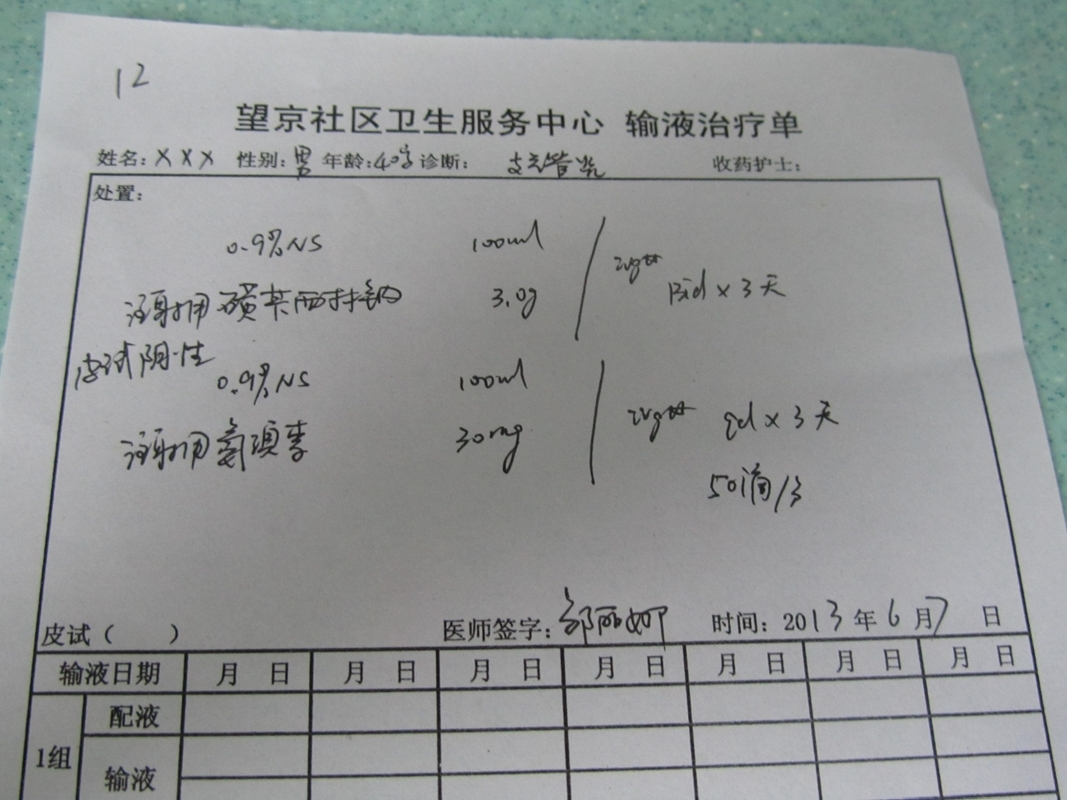 12
望京社区卫生服务中心 输液治疗单
姓名: XXX 性别: 男 年龄: 40岁 诊断: 支气管炎 收药护士:
处置:
0.9%NS 100ml
注射用磺苄西林钠 3.0g ivgtt Bid x 3天
皮试阴性
0.9%NS 100ml
注射用氨溴索 30mg ivgtt qd x 3天
50滴/分
皮试( ) 医师签字: 时间: 2013年6月7日
输液日期 月 日 月 日 月 日 月 日 月 日 月 日 月 日
1组 配液
输液